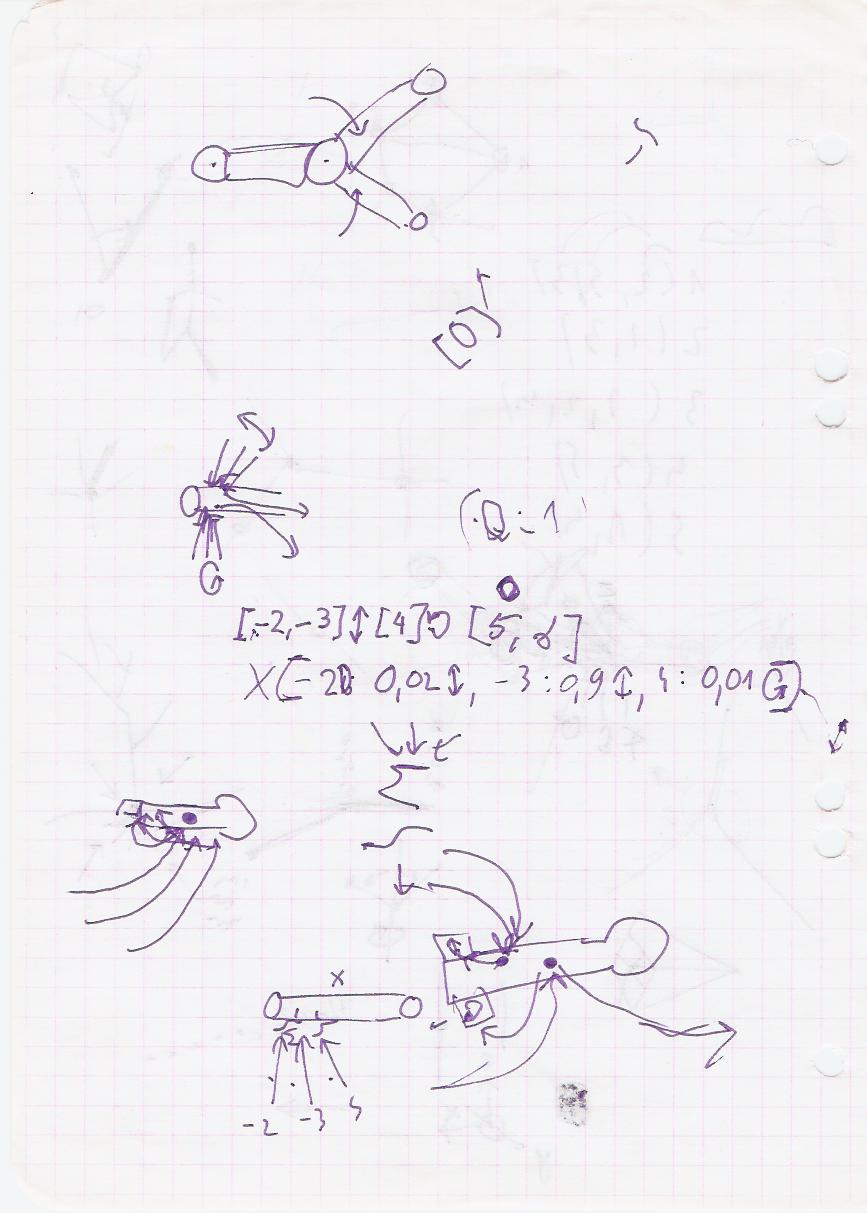 [0)
G
(.Q:-1
[-2,-3]↕[4]↻ [5,α]
X(-2: 0,02↕, -3:0,9↕, 4: 0,01 G)
t
X
-2 -3 4